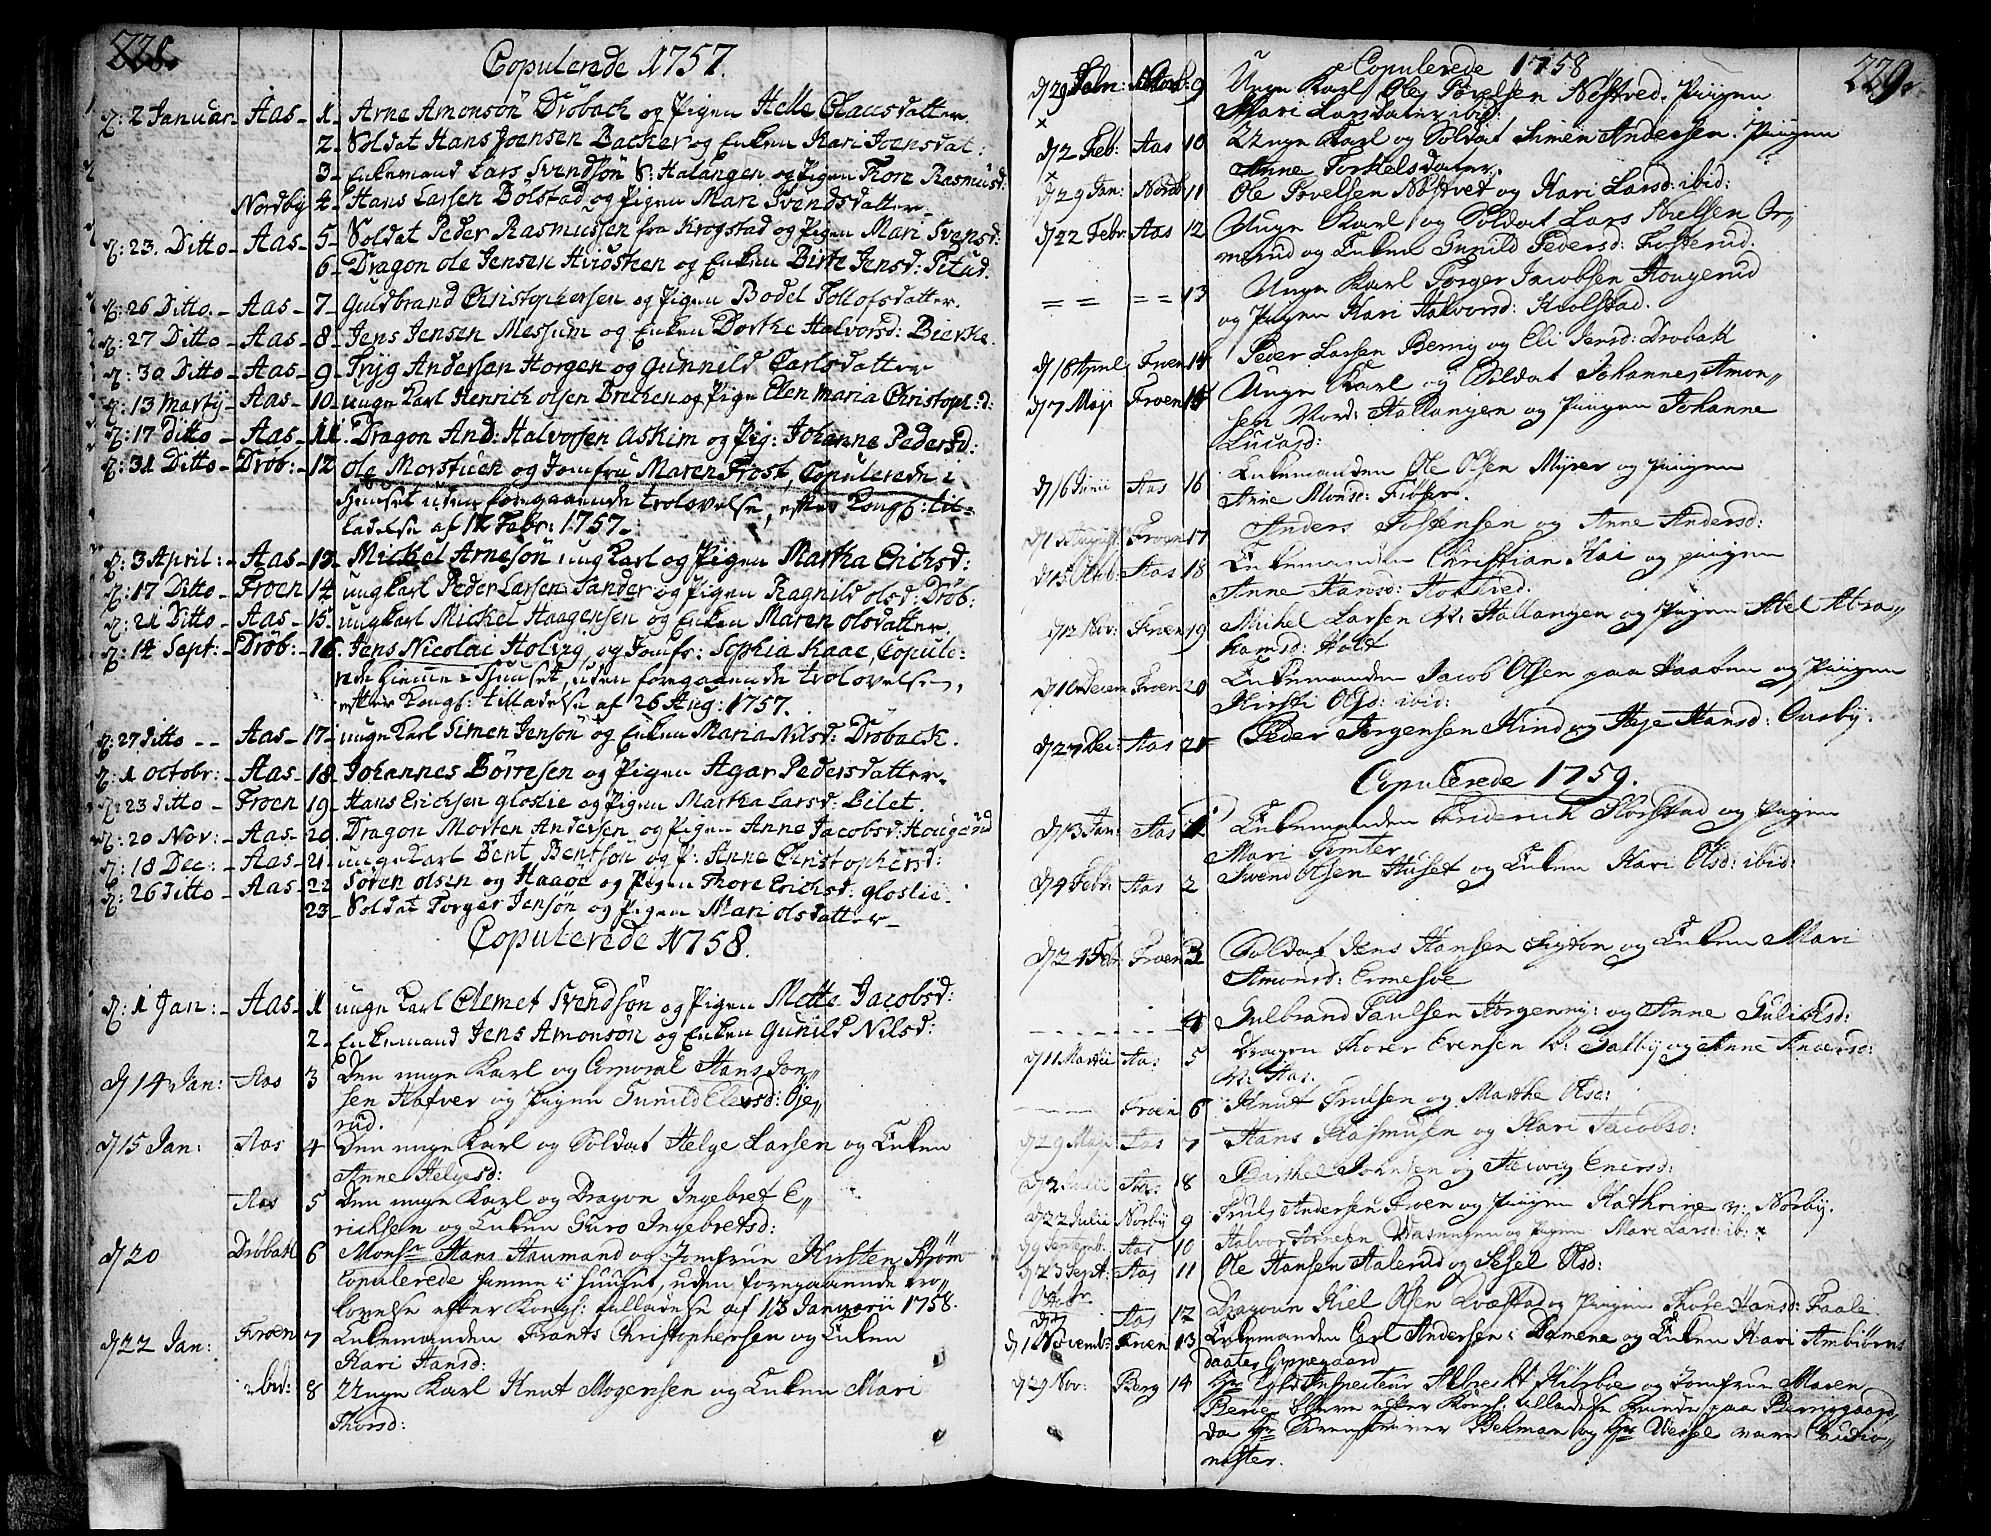 228.
Copulerede 1757.
d: 2 Januar Aas 1 Arne Amonsøn Drøback og Pigen Helle Clausdatter
2 Soldat Hans Joensen Backer og Enken Kari Joensdat:
3 Enkemand Lars Svendsøn S: Halangen og Pigen Thore Rasmusd:
Nordby 4 Hans Larsen Bølstad og Pigen Mari Svendsdatter
d: 23. Ditto Aas 5 Soldat Peder Rasmussen fra Krogstad og Pigen Mari Svensd:
6 Dragon Ole Jensen Hvidsteen og Enken Birte Jensd: Pitud.
d: 26 Ditto. Aas 7 Guldbrand Christophersen og Pigen Bodel Tollofsdatter
d: 27 Ditto Aas 8 Jens Jensen Messum og Enken Dorthe Halvorsd: Bierke.
d: 30 Ditto Aas 9 Tryg Andersen Horgen og Gunnild Carlsdatter
d: 13 Marty Aas 10 unge Karl Henrich olsen Brecken og Pige Elen maria Christoph:d:
d: 17 Ditto Aas 11. Dragon And: Halvorsen Askim og Pig: Johanne Pedersd:
d: 31 Ditto Drøb: 12 Ole Morstuen og Jomfru Maren Frost, Copulerede i
Huuset uden foregaaende trolovelse, efter Kongl: til-
ladelse af 11 Febr: 1757.
d: 3 April: Aas 13 Mickel Arnesøn ung Karl og Pigen Martha Erichsd:
d: 17 Ditto Froen 14 ungkarl Peder Larsen Sander og Pigen Ragnild olsd: Drøb:
d: 21 Ditto Aas 15 ungkarl Mickel Haagensen og Enken Maren olsdatter
d: 14 Sept: Drøb: 16. Jens Nicolai Holvig, og Jomfr: Sophia Kaae, Copule-
rede hiemme i Huuset, uden foregaaende trolovelse,
efter Kongl: tilladelse af 26 Aug: 1757.
d: 27 Ditto Aas 17 unge Karl Simen Jensøn og Enken Maria Nilsd: Drøback.
d: 1 Octobr: Aas 18 Johannes Børresen og Pigen Agar Pedersdatter
d: 23 Ditto Froen 19 Hans Erichsen gloslie og Pigen Martha Larsd: Bilet.
d: 20 Nov: Aas 20 Dragon Morten Andersen og Pigen Anne Jacobsd: Hougerud
d: 18 Dec: Aas 21 unge Karl Bent Bentsøn og P: Anne Christophersd:
d: 26 Ditto Aas 22 Søren olsen og Haaoe og Pigen Thore Erichsd: gloslie.
23 Soldat Torger Jensøn og Pigen Mari olsdatter
Copulerede 1758.
d: 1 Jan: Aas 1 unge Karl Clemet Svendsøn og Pigen Mette Jacobsd:
2 Enkemand Jens Amonsøn og Enken Gunild Nilsd:
d/14 Jan: Aas 3 Den unge Karl og Corporal Hans Jon-
sen Hafver og Pigen Gunild Elevsd: Gje-
rud.
d/15 Jan: Aas 4 Den unge Karl og Soldat Helge Larsen og Enken
Anne Helgesd:
Aas 5 Den unge Karl og Dragon Ingebret E-
richsen og Enken Guro Ingebretsd:
d/20 Drøbak 6 Monsr Hans Haumand og Jomfrue Kirsten Strøm
Copulerede hiemme i Huuset, uden foregaaende tro-
lovelse efter Kongl: tilladelse af 13 Januarii 1758.
d/22 Jan: Froen 7 Enkemanden Frants Christophersen og Enken
Kari Hansd:
ibid: 8 Unge Karl Knut Mogensen og Enken Mari
Thorsd:
229.
Copulerede 1758
d/29 Jan: Nordb: 9 Unge Karl Ole Povelsen Nøstved. Piigen
Mari Larsdater ibid:
d/2 Feb: Aas 10 Unge Karl og Soldat Simen Andersen. Piigen
Anne Torkelsdater.
d/29 Jan: Nordb 11 Ole Povelsen Nøstvet og Kari Larsd: ibid:
d/22 Febr: Aas 12 Unge Karl og Soldat Lars Nielsen Or-
merud og Enken Gunild Pedersd: Fosterud.
= = = = 13 Unge Karl Torger Jacobsen Hougerud
og Pigen Kari Halvorsd: Kiolstad.
d/18 April Froen 14 Peder Larsen Berrig og Eli Jensd: Drobak
d/7 Maji Froen 15 Unge Karl og Soldat Johannes Amon-
sen Nord: Hallangen og Piigen Johanne
Lucasd:
d/16 Junii Aas 16 Enkemanden Ole Olsen Myrer og Piigen
Anne Monsd: Fiøser.
August Froen 17 Anders Tostensen og Anne Andersd:
d/15 Octb: Aas 18 Enkemanden Christian Kai og piigen
Anne Hansd:
d/12 Nov: Froen 19 Michel Larsen N: Hallangen og Pigen Abel Abra-
hamsd: Holt
d/10 Decem Froen 20 Enkemanden Jacob Olsen paa Haaøen og Piigen
Kirsti Olsd: ibid:
d/27 Dec: Aas 21 Peder Jørgensen Hind og Aeje Hansd: Ousby.
Copulerede 1759.
d/13 Jan: Aas 1 Enkemanden Friderich Korstad og Pigen
Mari Simter
d/4 Febr Aas 2 Svend Olsen Huset og Enken Kari Olsd: ibid:
d/24 Feb: Froen 3 Soldat Jens Hansen Digton og Enken Mari
Amonsd: Ermesøe
4 Gulbrand Paulsen Horgen og Anne Gulichsd:
d/11 Martii Aas 5 Dragon Thorer Evensen V: Galby og Anne Andersd:
N: Aas.
Froen 6 Knut Trulsen og Marthe Olsd:
d/29 Maji Aas 7 Hans Rasmusen og Kari Jacobsd:
d/2 Julii Aas: 8 Barthel Johnsen og Helwig Enersd:
d/22 Julii Norby 9 Truls Andersen Froen og Piigen Kathrine v: Norby.
d/9 Septemb. Aas 10 Halvor Arnesen og Piigen Mari Larsd: ib:
d/23 Sept: Aas 11 Ole Hansen Aalerud og Sesel Olsd:
Octbr Aas 12 Dragoun Kiel Olsen og Piigen Thore Hansd: Faale.
d/1 Novemb: Froen 13 Enkemanden Carl Andersen i Damene og Enken Kari Ambiørns
daater Oppegaard
d/29 Nov: Borg 14 Hr Toldinspecteur Albrecht Hiibøe og Jomfrue Maren
Berrie bleve efter Kongl: tilladelse viede paa Berriggaard,
da Hr Skrenschriver Bekman og Hr Wessel vare Cautio-
nister.